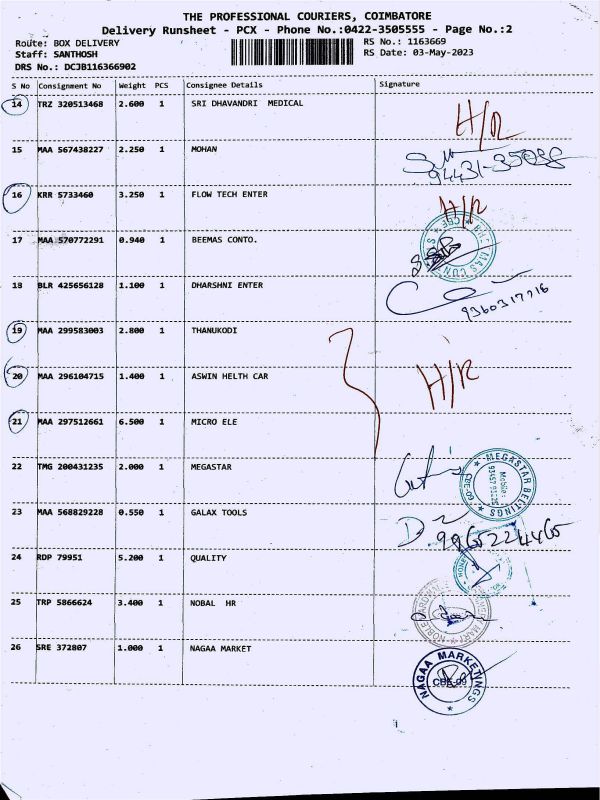 THE PROFESSIONAL COURIERS, COIMBATORE
Delivery Runsheet - PCX - Phone No.:0422-3505555 - Page No.:2
Route: BOX DELIVERY
RS No.: 1163669
Staff: SANTHOSH
RS Date: 03-May-2023
DRS No.: DCJB116366902
S No Consignment No Weight PCS Consignee Details Signature
14 TRZ 320513468 2.600 1 SRI DHAVANDRI MEDICAL
H/R
15 MAA 567438227 2.250 1 MOHAN
16 KRR 5733460 3.250 1 FLOW TECH ENTER
H/R
17 MAA 570772291 0.940 1 BEEMAS CONTO.
18 BLR 425656128 1.100 1 DHARSHNI ENTER
9360317716
19 MAA 299583003 2.800 1 THANUKODI
20 MAA 296104715 1.400 1 ASWIN HELTH CAR
H/R
21 MAA 297512661 6.500 1 MICRO ELE
22 TMG 200431235 2.000 1 MEGASTAR
MEGASTAR BELTINGS
23 MAA 568829228 0.550 1 GALAX TOOLS
9965224465
24 RDP 79951 5.200 1 QUALITY
25 TRP 5866624 3.400 1 NOBAL HR
26 SRE 372807 1.000 1 NAGAA MARKET
NAGAA MARKETINGS
CBE-09